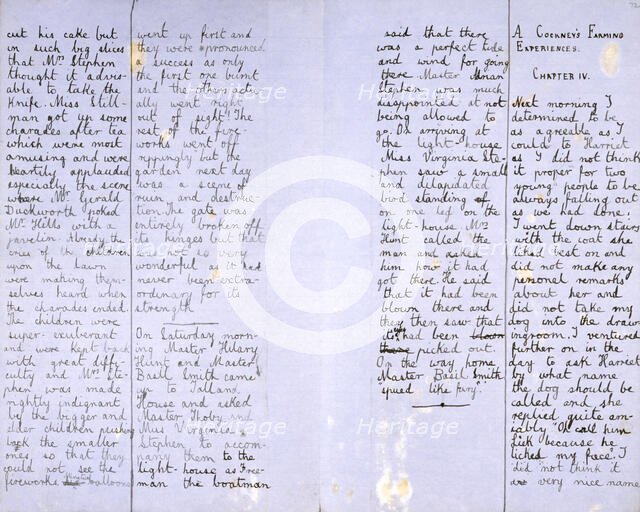 72
cut his cake but
in such big slices
that Mrs Stephen
thought it advis-
able to take the
Knife. Miss Still-
man got up some
charades after tea
which were most
amusing and were
heartily applauded
especially the scene
where Mr Gerald
Duckworth poked
Mr Hills with a
javelin. Already the
cries of the children
upon the lawn
were making them-
selves heard when
the charades ended.
The children were
super-exuberant
and were kept back
with great diffi-
culty and Mrs Ste-
phen was made
rightly indignant
by the bigger and
elder children pushing
back the smaller
ones, so that they
could not see the
fireworks balloons
went up first and
they were pronounced
a success as only
the first one burnt
and the others actu-
ally went right
out of sight! The
rest of the fire-
works went off
rippingly but the
garden next day
was a scene of
ruin and destruc-
tion. The gate was
entirely broken off
its hinges but that
was not so very
wonderful as it had
never been extra-
ordinary for its
strength
On Saturday morn-
ing Master Hilary
Hunt and Master
Basil Smith came
up to Talland
House and asked
Master Thoby and
Miss Virginia
Stephen to accom-
pany them to the
light-house as Free-
man the boatman
said that there
was a perfect tide
and wind for going
there. Master Adrian
Stephen was much
disappointed at not
being allowed to
go. On arriving at
the light-house
Miss Virginia Ste-
phen saw a small
and dilapidated
bird standing
on one leg on the
light-house. Mrs
Hunt called the
man and asked
him how it had
got there. He said
that it had been
blown there and
they then saw that
its eyes had been
picked out.
On the way home
Master Basil Smith
"spued like fury".
A Cockney's Farming
Experiences.
Chapter IV.
Next morning I
determined to be
as agreeable as I
could to Harriet
as I did not think
it proper for two
young people to be
always falling out
as we had done.
I went down stairs
with the coat she
liked best on and
did not make any
personel remarks
about her and
did not take my
dog into the draw-
ingroom. I ventured
further on in the
day to ask Harriet
by what name
the dog should be
called and she
replied quite am-
iably "Oh call him
Lick because he
licked my face". I
did not think it
a very nice name